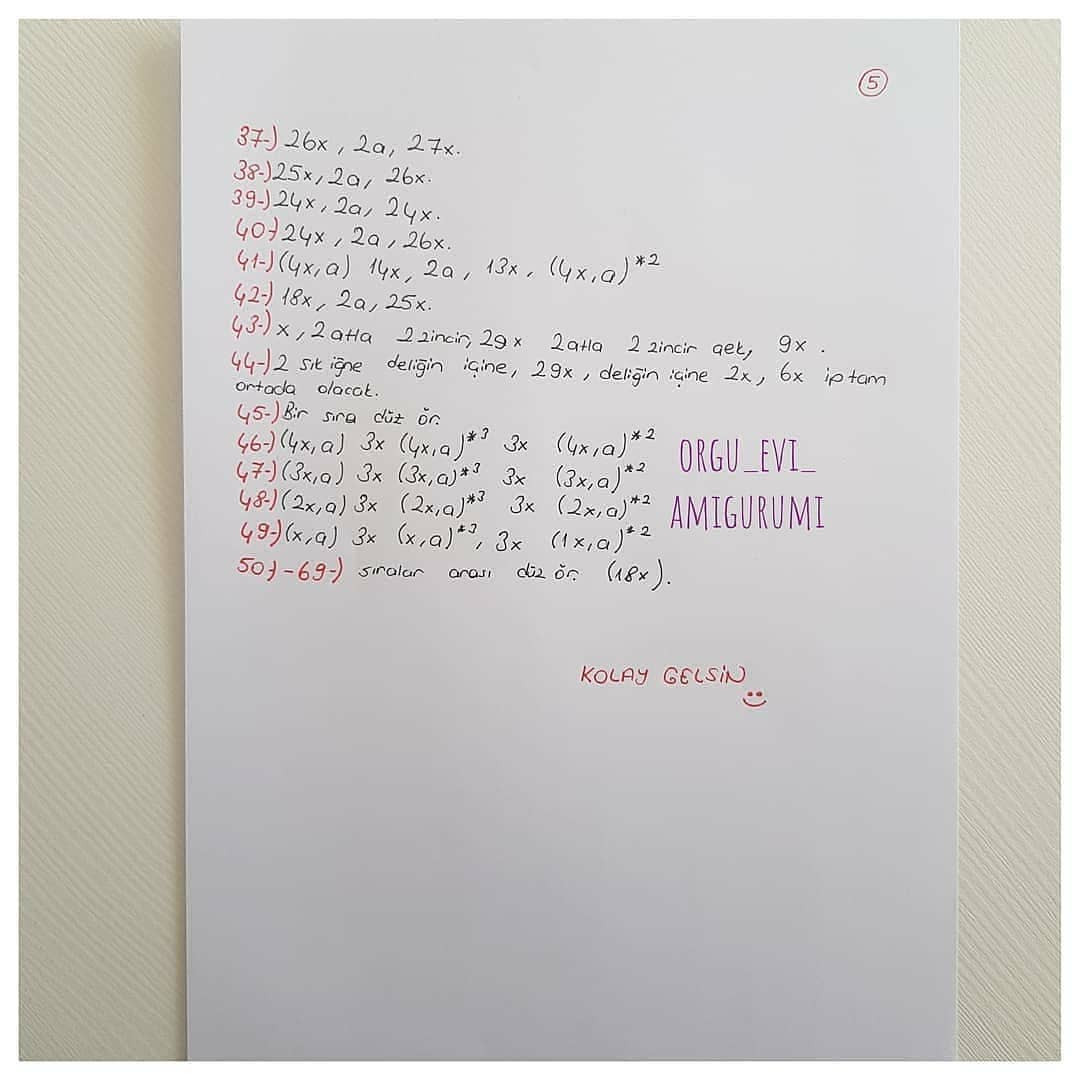 5
37-) 26x, 2a, 27x.
38-) 25x, 2a, 26x.
39-) 24x, 2a, 24x.
40-) 24x, 2a, 26x.
41-) (4x,a) 14x, 2a, 13x, (4x,a)*2
42-) 18x, 2a, 25x.
43-) x, 2 atla 2 zincir, 29x 2 atla 2 zincir çek, 9x.
44-) 2 sık iğne deliğin içine, 29x, deliğin içine 2x, 6x ip tam
ortada olacak.
45-) Bir sıra düz ör.
46-) (4x,a) 3x (4x,a)*3 3x (4x,a)*2
47-) (3x,a) 3x (3x,a)*3 3x (3x,a)*2
48-) (2x,a) 3x (2x,a)*3 3x (2x,a)*2
49-) (x,a) 3x (x,a)*3, 3x (1x,a)*2
50-) - 69-) sıralar arası düz ör. (18x).
ORGU_EVI_
AMIGURUMI
KOLAY GELSİN